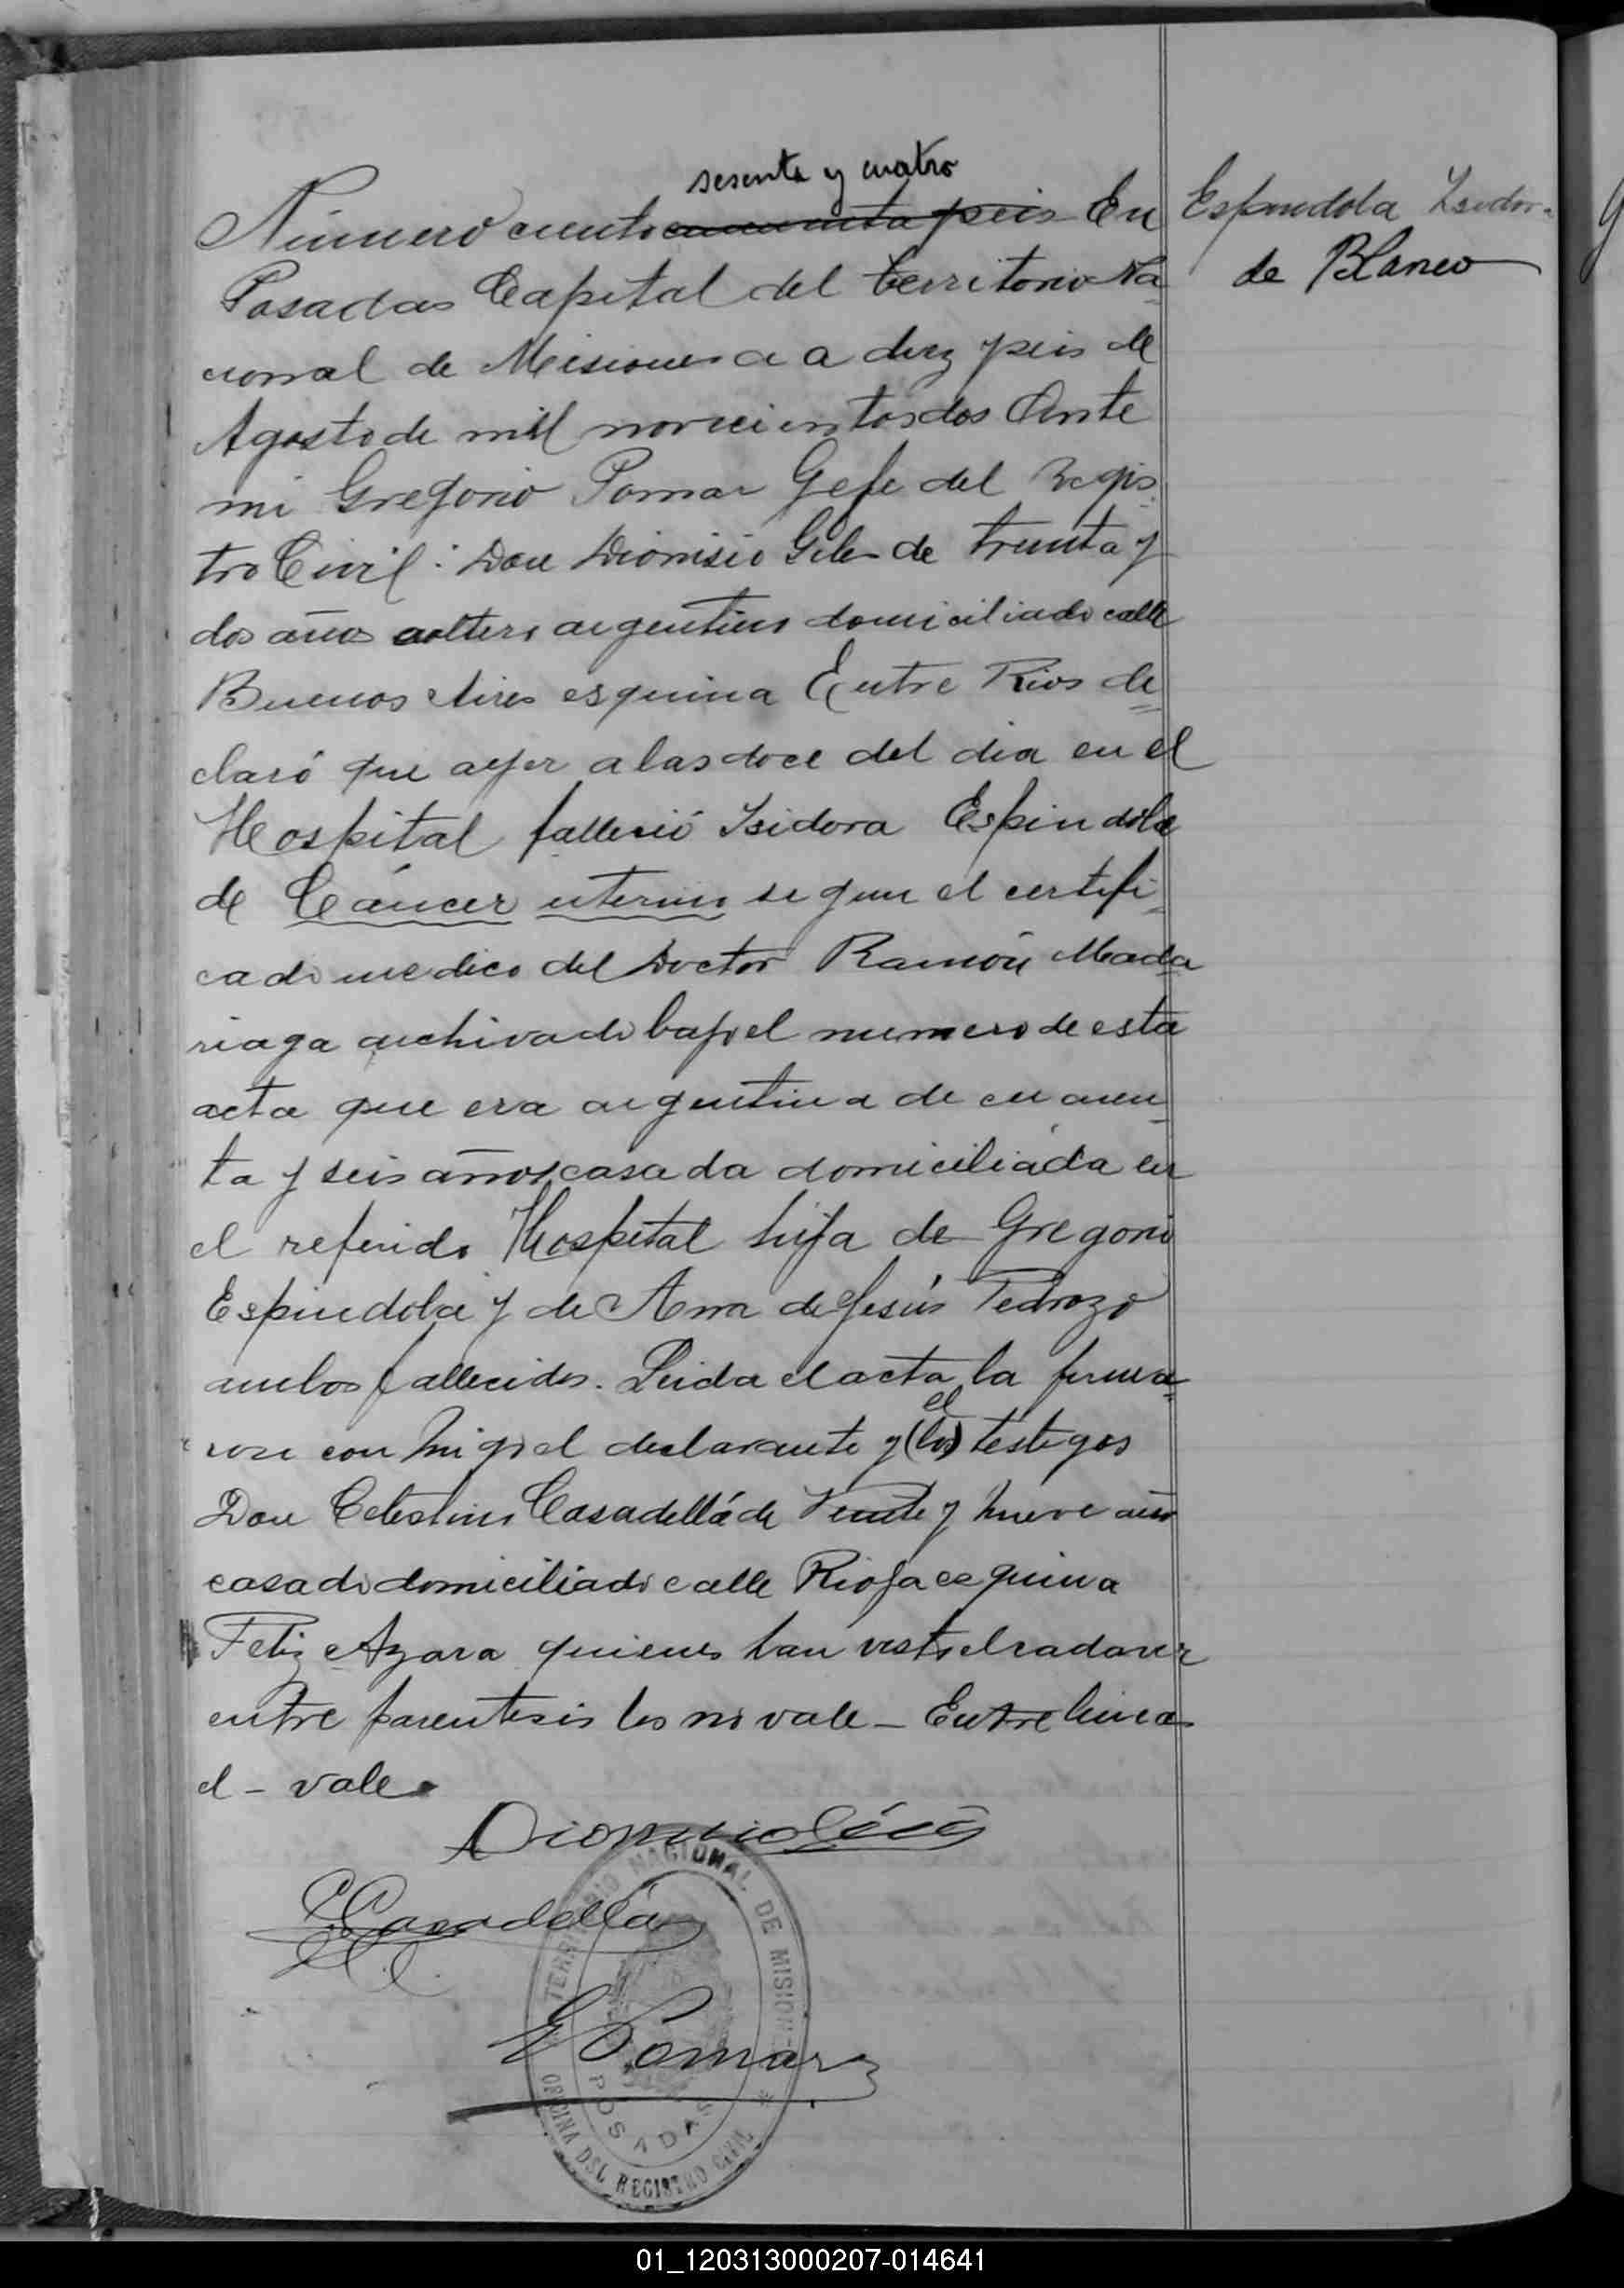 sesenta y cuatro
Número ciento cincuenta y seis En
Posadas Capital del territorio Na
cional de Misiones a a diez y seis de
Agosto de mil novecientos dos Ante
mi Gregorio Pomar Gefe del Regis
tro Civil: Don Dionisio Giles de treinta y
dos años soltero argentino domiciliado calle
Buenos Aires esquina Entre Rios de=
claró que ayer a las doce del dia en el
Hospital falleció Isidora Espindola
de Cáncer uterino segun el certifi
cado medico del Doctor Ramón Mada
riaga archivado bajo el numero de esta
acta que era argentina de cuaren
ta y seis años casada domiciliada en
el referido Hospital hija de Gregorio
Espindola y de Ana de Jesús Pedrozo
ambos fallecidos. Leida el acta la firma=
el
ron con migo el declarante y (los) testigos
Don Celestino Casadellá de Veinte y nueve años
casado domiciliado calle Rioja esquina
Feliz Azara quienes han visto el cadaver
entre parentesis los no vale - Entre lineas
el - vale
Espindola Isidora
de Blanco
Casadellá
G Pomar
TERRITORIO NACIONAL DE MISIONES
POSADAS
OFICINA DEL REGISTRO CIVIL
01_120313000207-014641